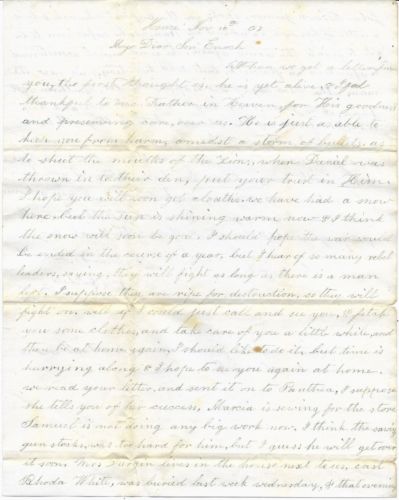 Home Nov 10th 63
My Dear Son Enoch
When we get a letter from
you, the first thought is, he is yet alive, & I feel
thankful to our Father in Heaven, for His goodness
and preserving care, over us. He is just as able to
keep you from harm, amidst a storm of bullets, as
to shut the mouths of the Lions, when Daniel was
thrown in to their den, put your trust in Him.
I hope you will soon get cloaths, we have had a snow
here, but the sun is shining warm now & I think
the snow will soon be gon. I should hope the war would
be ended in the course of a year, but I hear of so many rebel
leaders, saying, they will fight as long as there is a man
left. I suppose they are ripe for destruction, so they will
fight on. well if I could just call and see you, & fetch
you some clothes, and take care of you a little while, and
then be at home again, I should like to do it, but time is
hurrying along & I hope to see you again at home.
we read your letter, and sent it on to Panthea, I suppose
she tells you of her success, Marcia is sewing for the store
Samuel is not doing any big work now, I think the sawing
gun stocks, was too hard for him, but I guess he will get over
it soon. Mrs lives in the house next to us, east
Rhoda White, was buried last week wednesday, & that evening